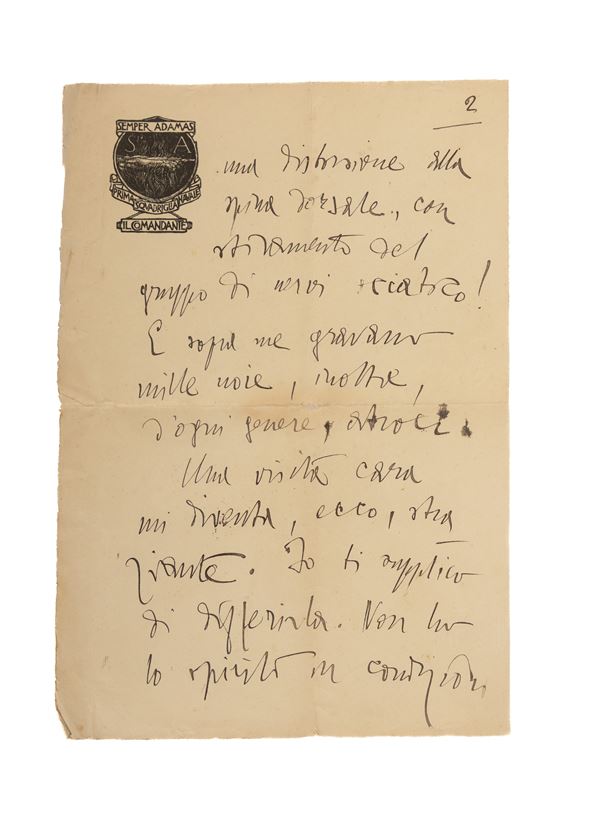 2
SEMPER ADAMAS
S A
PRIMA SQUADRIGLIA NAVALE
IL COMANDANTE
una distorsione alla
spina dorsale, con
stiramento del
gruppo di nervi sciatico!
E sopra me gravano
mille noie, inoltre,
d'ogni genere, atroci.
Una visita cara
mi diventa, ecco, stra
ziante. Io ti supplico
di differirla. Non ho
lo spirito in condizioni